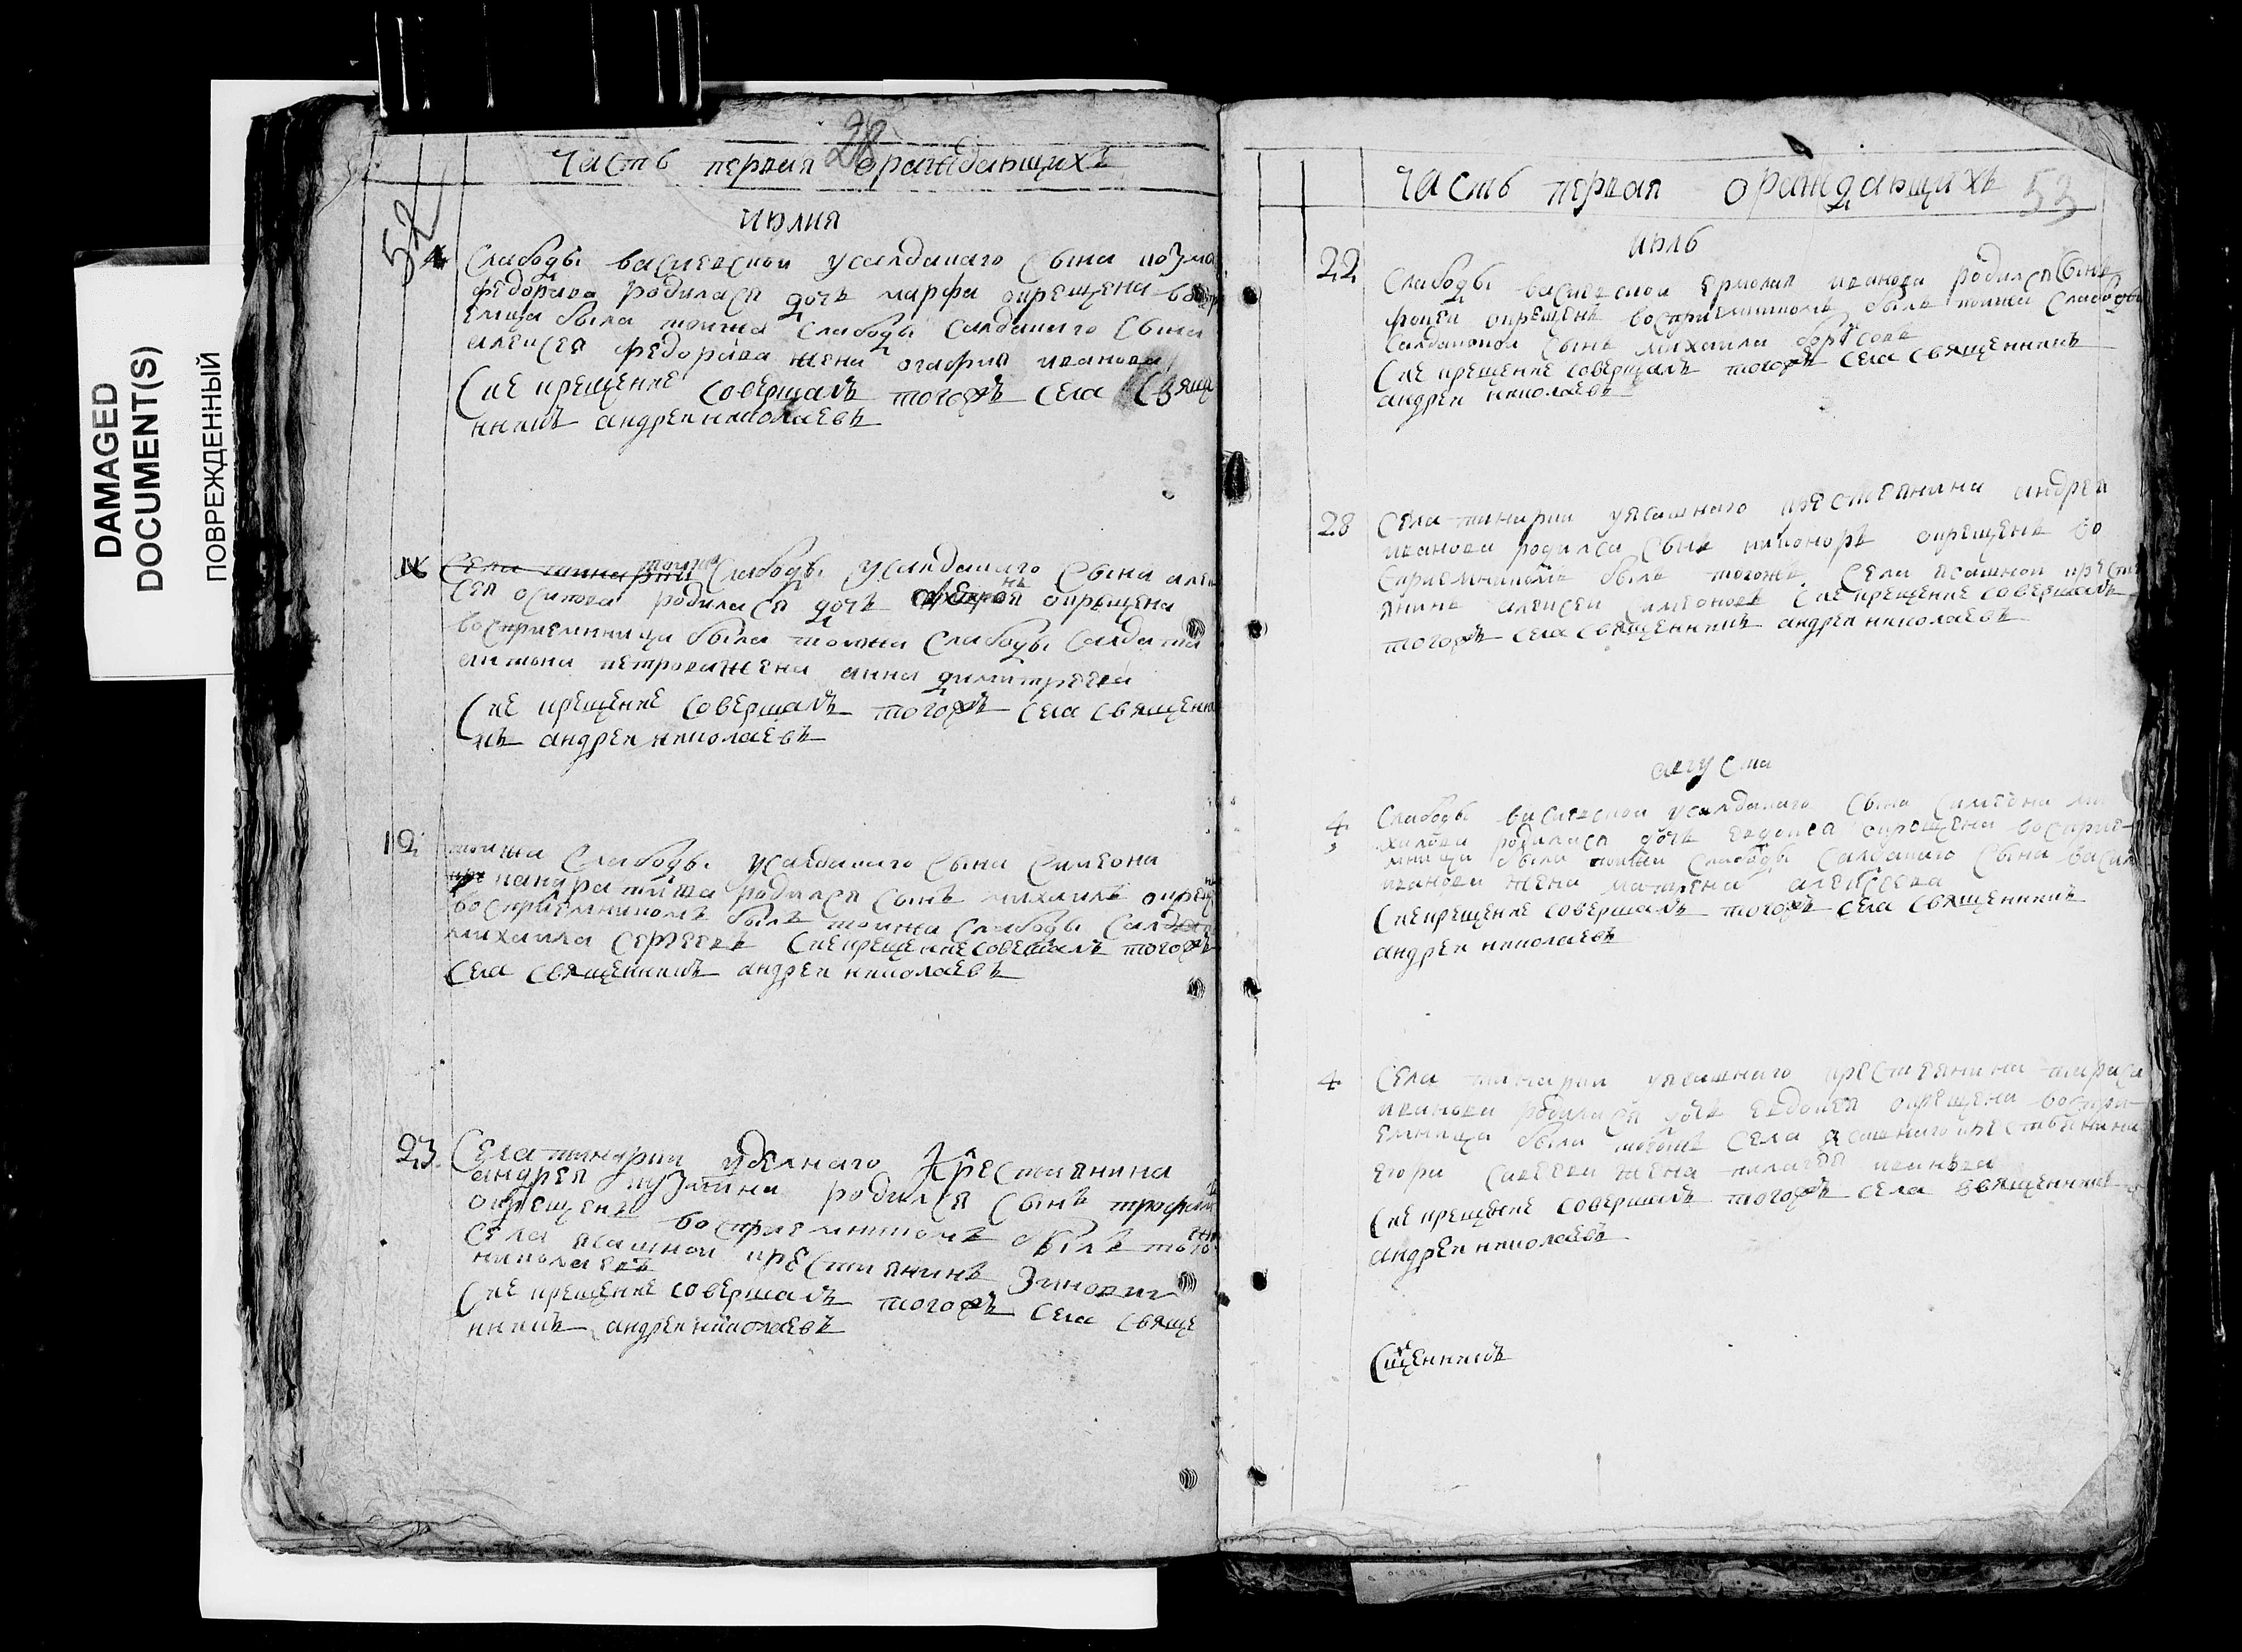 DAMAGED
DOCUMENT(S)
ПОВРЕЖДЕННЫЙ
28
часть первая ораждающихъ
52
июлия
4 Слабоды васлевской усалдацкаго сына козма
федорова родилася дочь марфа окрещена воспри
емница была тоижа слабоды салдацкаго сына
алексея федорова жена огафия иванова
сие крещение совершалъ тогожъ села свяще
нникъ андреи николаевъ
села шинарки тоижа слабоды усалдацкаго сына алек
сея осипова родилася дочь окрещена
восприемница была тоижа слабоды салдата
антона петрова жена анна димитрева
сие крещение совершалъ тогожъ села священни
къ андреи николаевъ
19 тоижа слабоды усалдацкаго сына симеона
родился сынъ михаилъ окрещ
восприемникомъ былъ тоижа слабоды салда
михаила сергеевъ сие крещение совешалъ тогожъ
села священникъ андреи николаевъ
23 села шинарки уделнаго крестиянина
андрея кузмина родился сынъ трофим
окрещенъ восприемникомъ былъ того
села ясашнои крестиянинъ зиновии
николаевъ
сие крещение совершалъ тогожъ села свяще
нникъ андреи николаевъ
часть первая ораждающихъ 53
июль
22 слабоды васлевскои ермолая иванова родился сынъ
фокеи окрещенъ восприемникомъ былъ тоижа слабоды
салдацкои сынъ михаила борисовъ
сие крещение совершалъ тогожъ села священникъ
андреи николаевъ
28 села шинарки уясашнаго крестеянина андрея
иванова родилса сынъ никоноръ окрещенъ во
сприемникомъ былъ тогожъ села ясашнои крести
янинъ алексеи симеоновъ сие крещение совершалъ
тогожъ села священникъ андреи николаевъ
августа
4 слабоды васлевскои усалдацкаго сына симеона ми
хилова родилася дочь евдокея окрещена восприе
мница была тоижа слабоды салдацкаго сына васил
иванова жена матрена алексеева
сие крещение совершалъ тогожъ села священникъ
андреи николаевъ
4 села шинарки уясашнаго крестеянина тараса
иванова родилася дочь евдокея окрещена воспри
емница была тогожъ села ясашнаго крестьянина
егора савеева жена пилагея иванова
сие крещение совершалъ тогожъ села священникъ
андреи николаевъ
сщенникъ